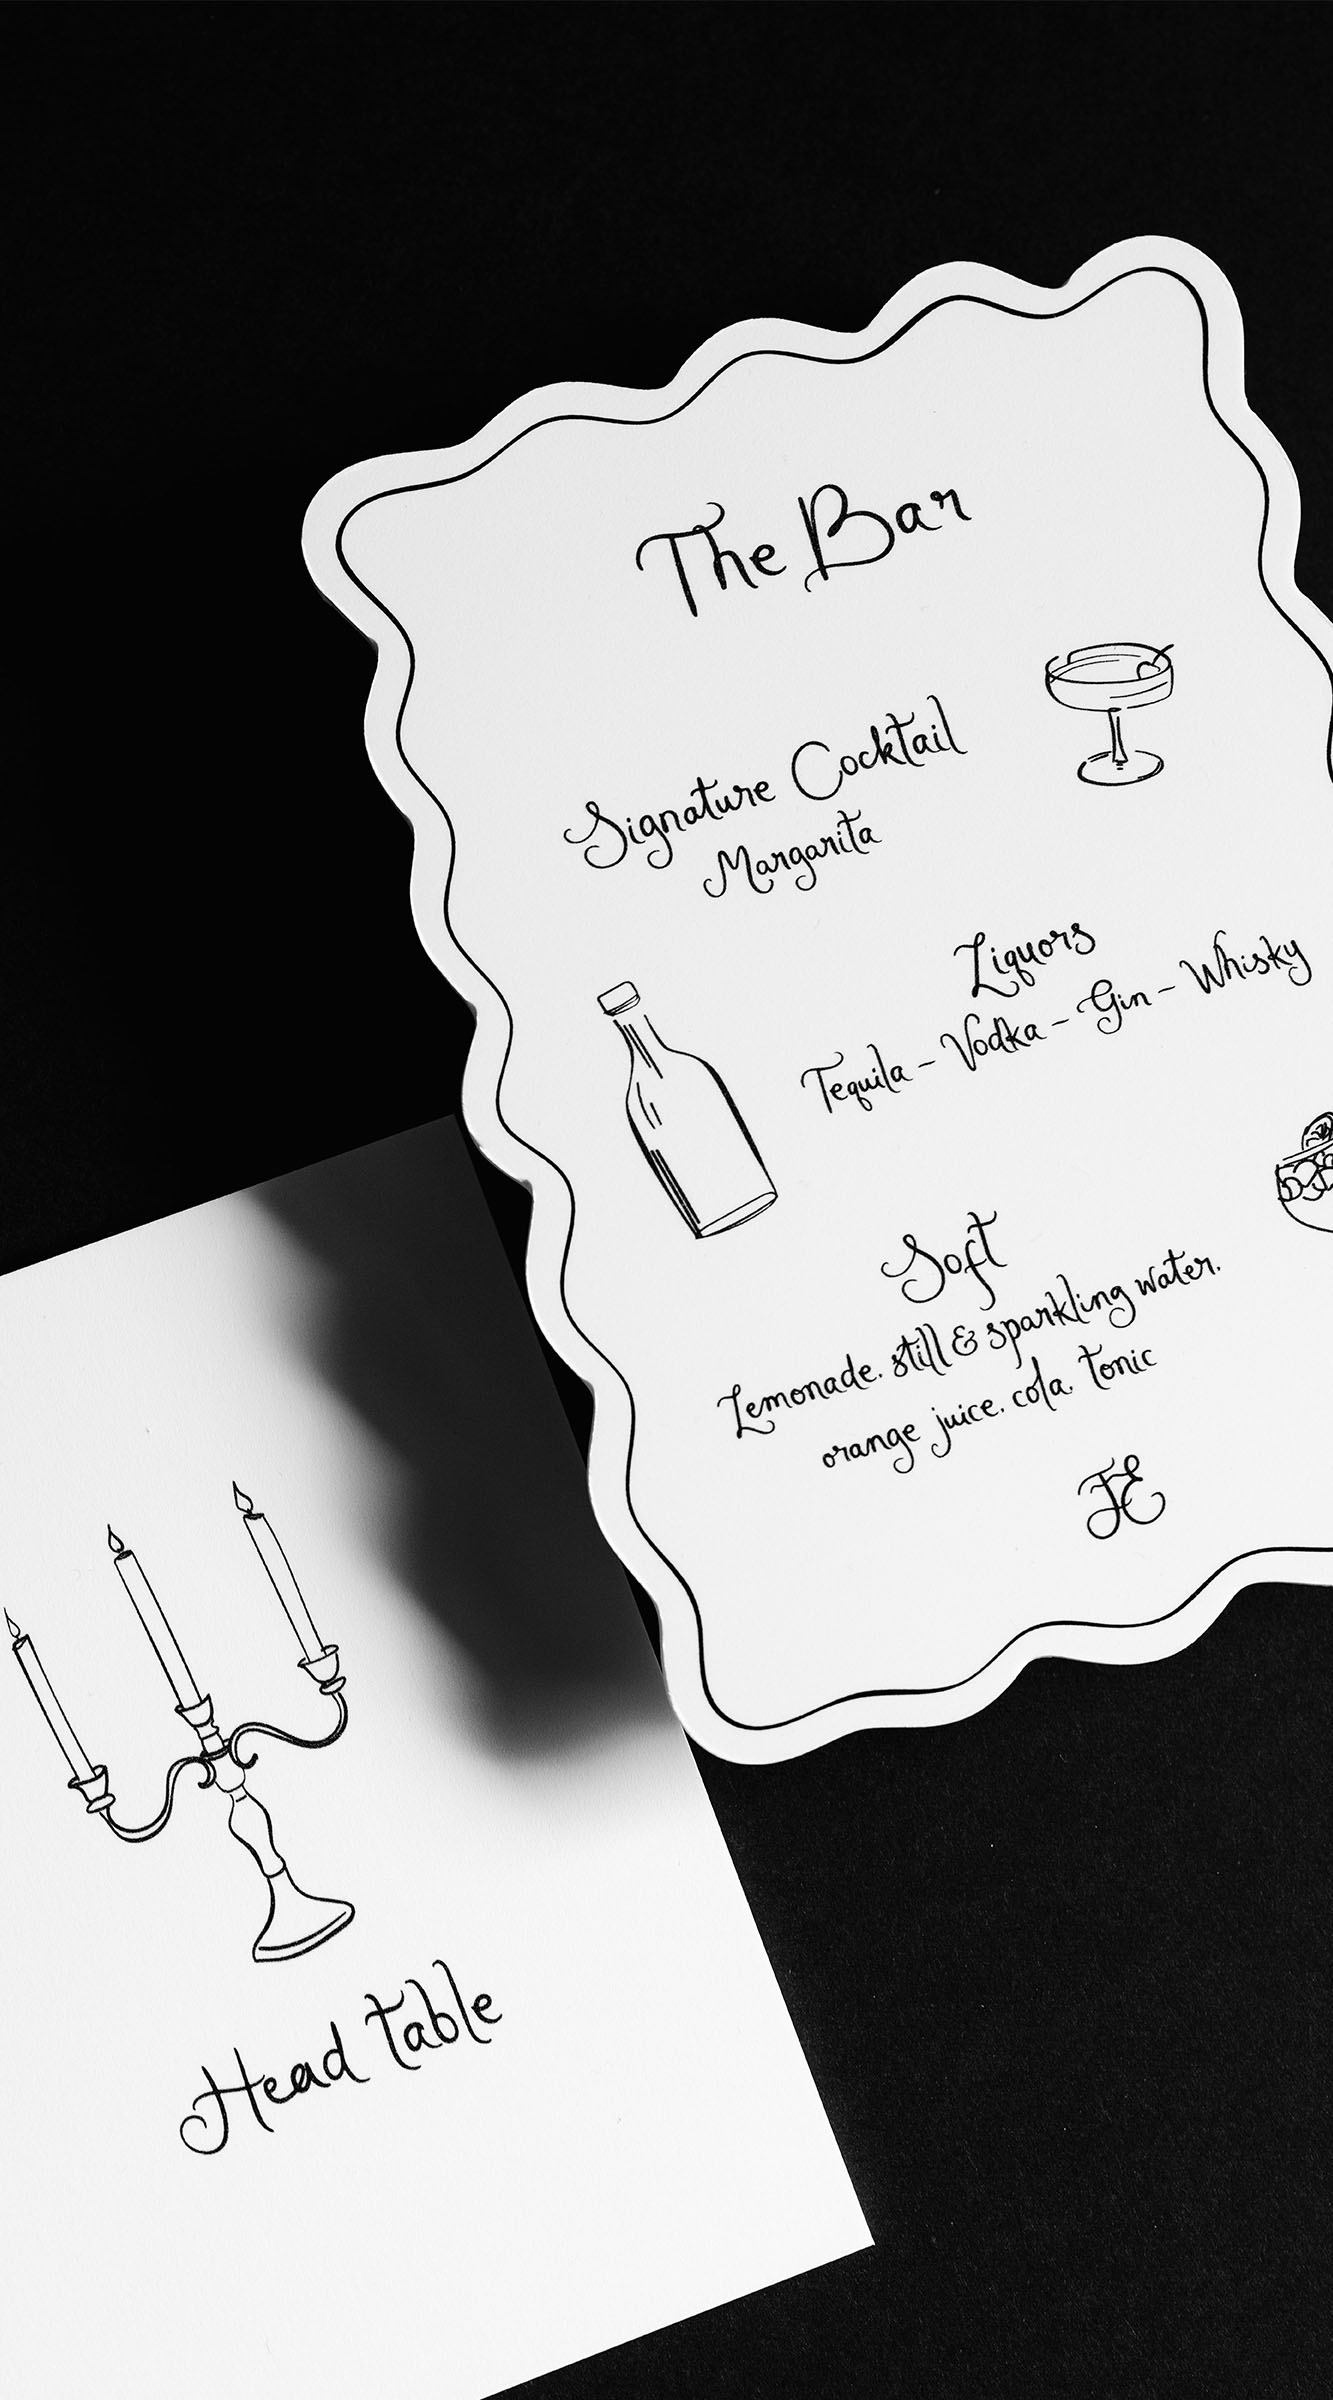 The Bar
Signature Cocktail
Margarita
Liquors
Tequila - Vodka - Gin - Whisky
Soft
Lemonade, still & sparkling water,
orange juice, cola, tonic
JE
Head table